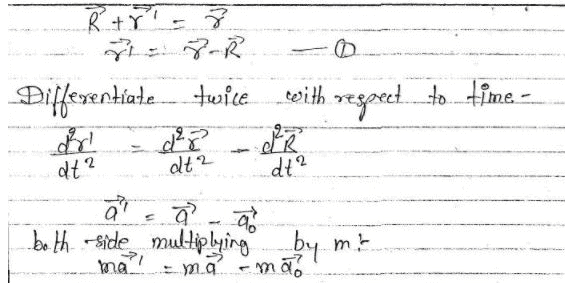 R⃗ + r⃗' = r⃗
r⃗' = r⃗ - R⃗ — ①
Differentiate twice with respect to time -
d²r⃗'/dt² = d²r⃗/dt² - d²R⃗/dt²
a⃗' = a⃗ - a⃗₀
both side multiplying by m :-
ma⃗' = ma⃗ - ma⃗₀